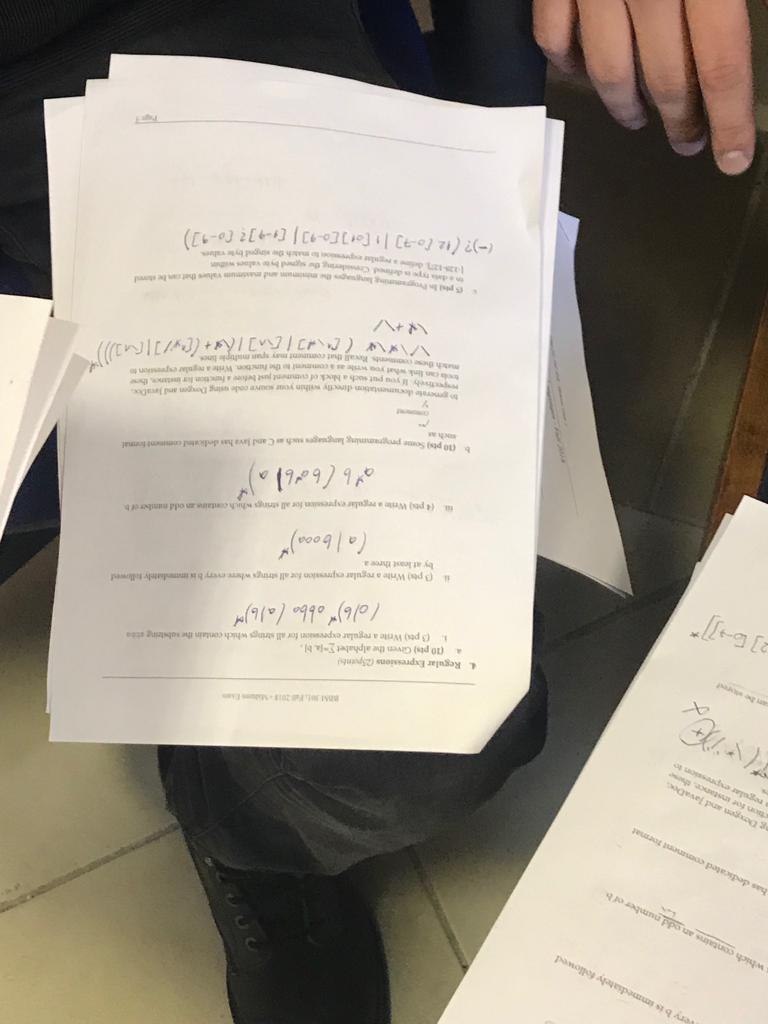 BBM 301, Fall 2018 - Midterm Exam
4. Regular Expressions (25points)
a. (10 pts) Given the alphabet ∑={a, b} ,
i. (3 pts) Write a regular expression for all strings which contain the substring abba
(a|b)* abba (a|b)*
ii. (3 pts) Write a regular expression for all strings where every b is immediately followed
by at least three a
(a | baaa)*
iii. (4 pts) Write a regular expression for all strings which contains an odd number of b.
a*b (ba*b|a)*
b. (10 pts) Some programming languages such as C and Java has dedicated comment format
such as
/**
comment
*/
to generate documentation directly within your source code using Doxgen and JavaDoc,
respectively. If you put such a block of comment just before a function for instance, these
tools can link what you write as a comment to the function. Write a regular expression to
match these comments. Recall that comment may span multiple lines.
\/\*\* ( [^\*] | [\n] | (\*+([^*/] | [\n])))*
\*+\/
c. (5 pts) In Programming languages the minimum and maximum values that can be stored
to a data type is defined. Considering the signed byte values within
[-128-127], define a regular expression to match the singed byte values.
(-)? (12 [0-7] | 1 [01][0-9] | [1-9]? [0-9])
Page 5
very b is immediately followed
which contains an odd number of b.
has dedicated comment format
ng Doxgen and JavaDoc,
ction for instance, these
regular expression to
can be stored